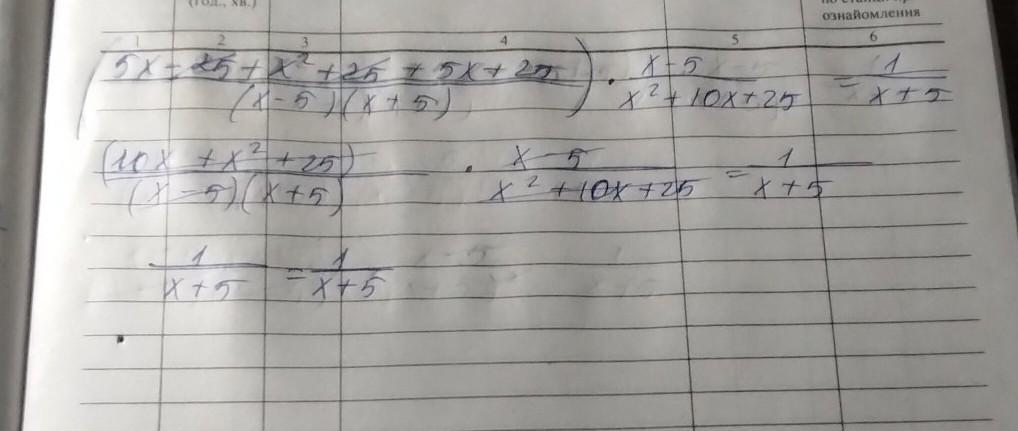 (год., хв.)
ознайомлення
1 2 3 4 5 6
(5x - 25 + x² + 25 + 5x + 25 / (x - 5)(x + 5)) · x - 5 / x² + 10x + 25 = 1 / x + 5
(10x + x² + 25) / (x - 5)(x + 5) · x - 5 / x² + 10x + 25 = 1 / x + 5
1 / x + 5 = 1 / x + 5